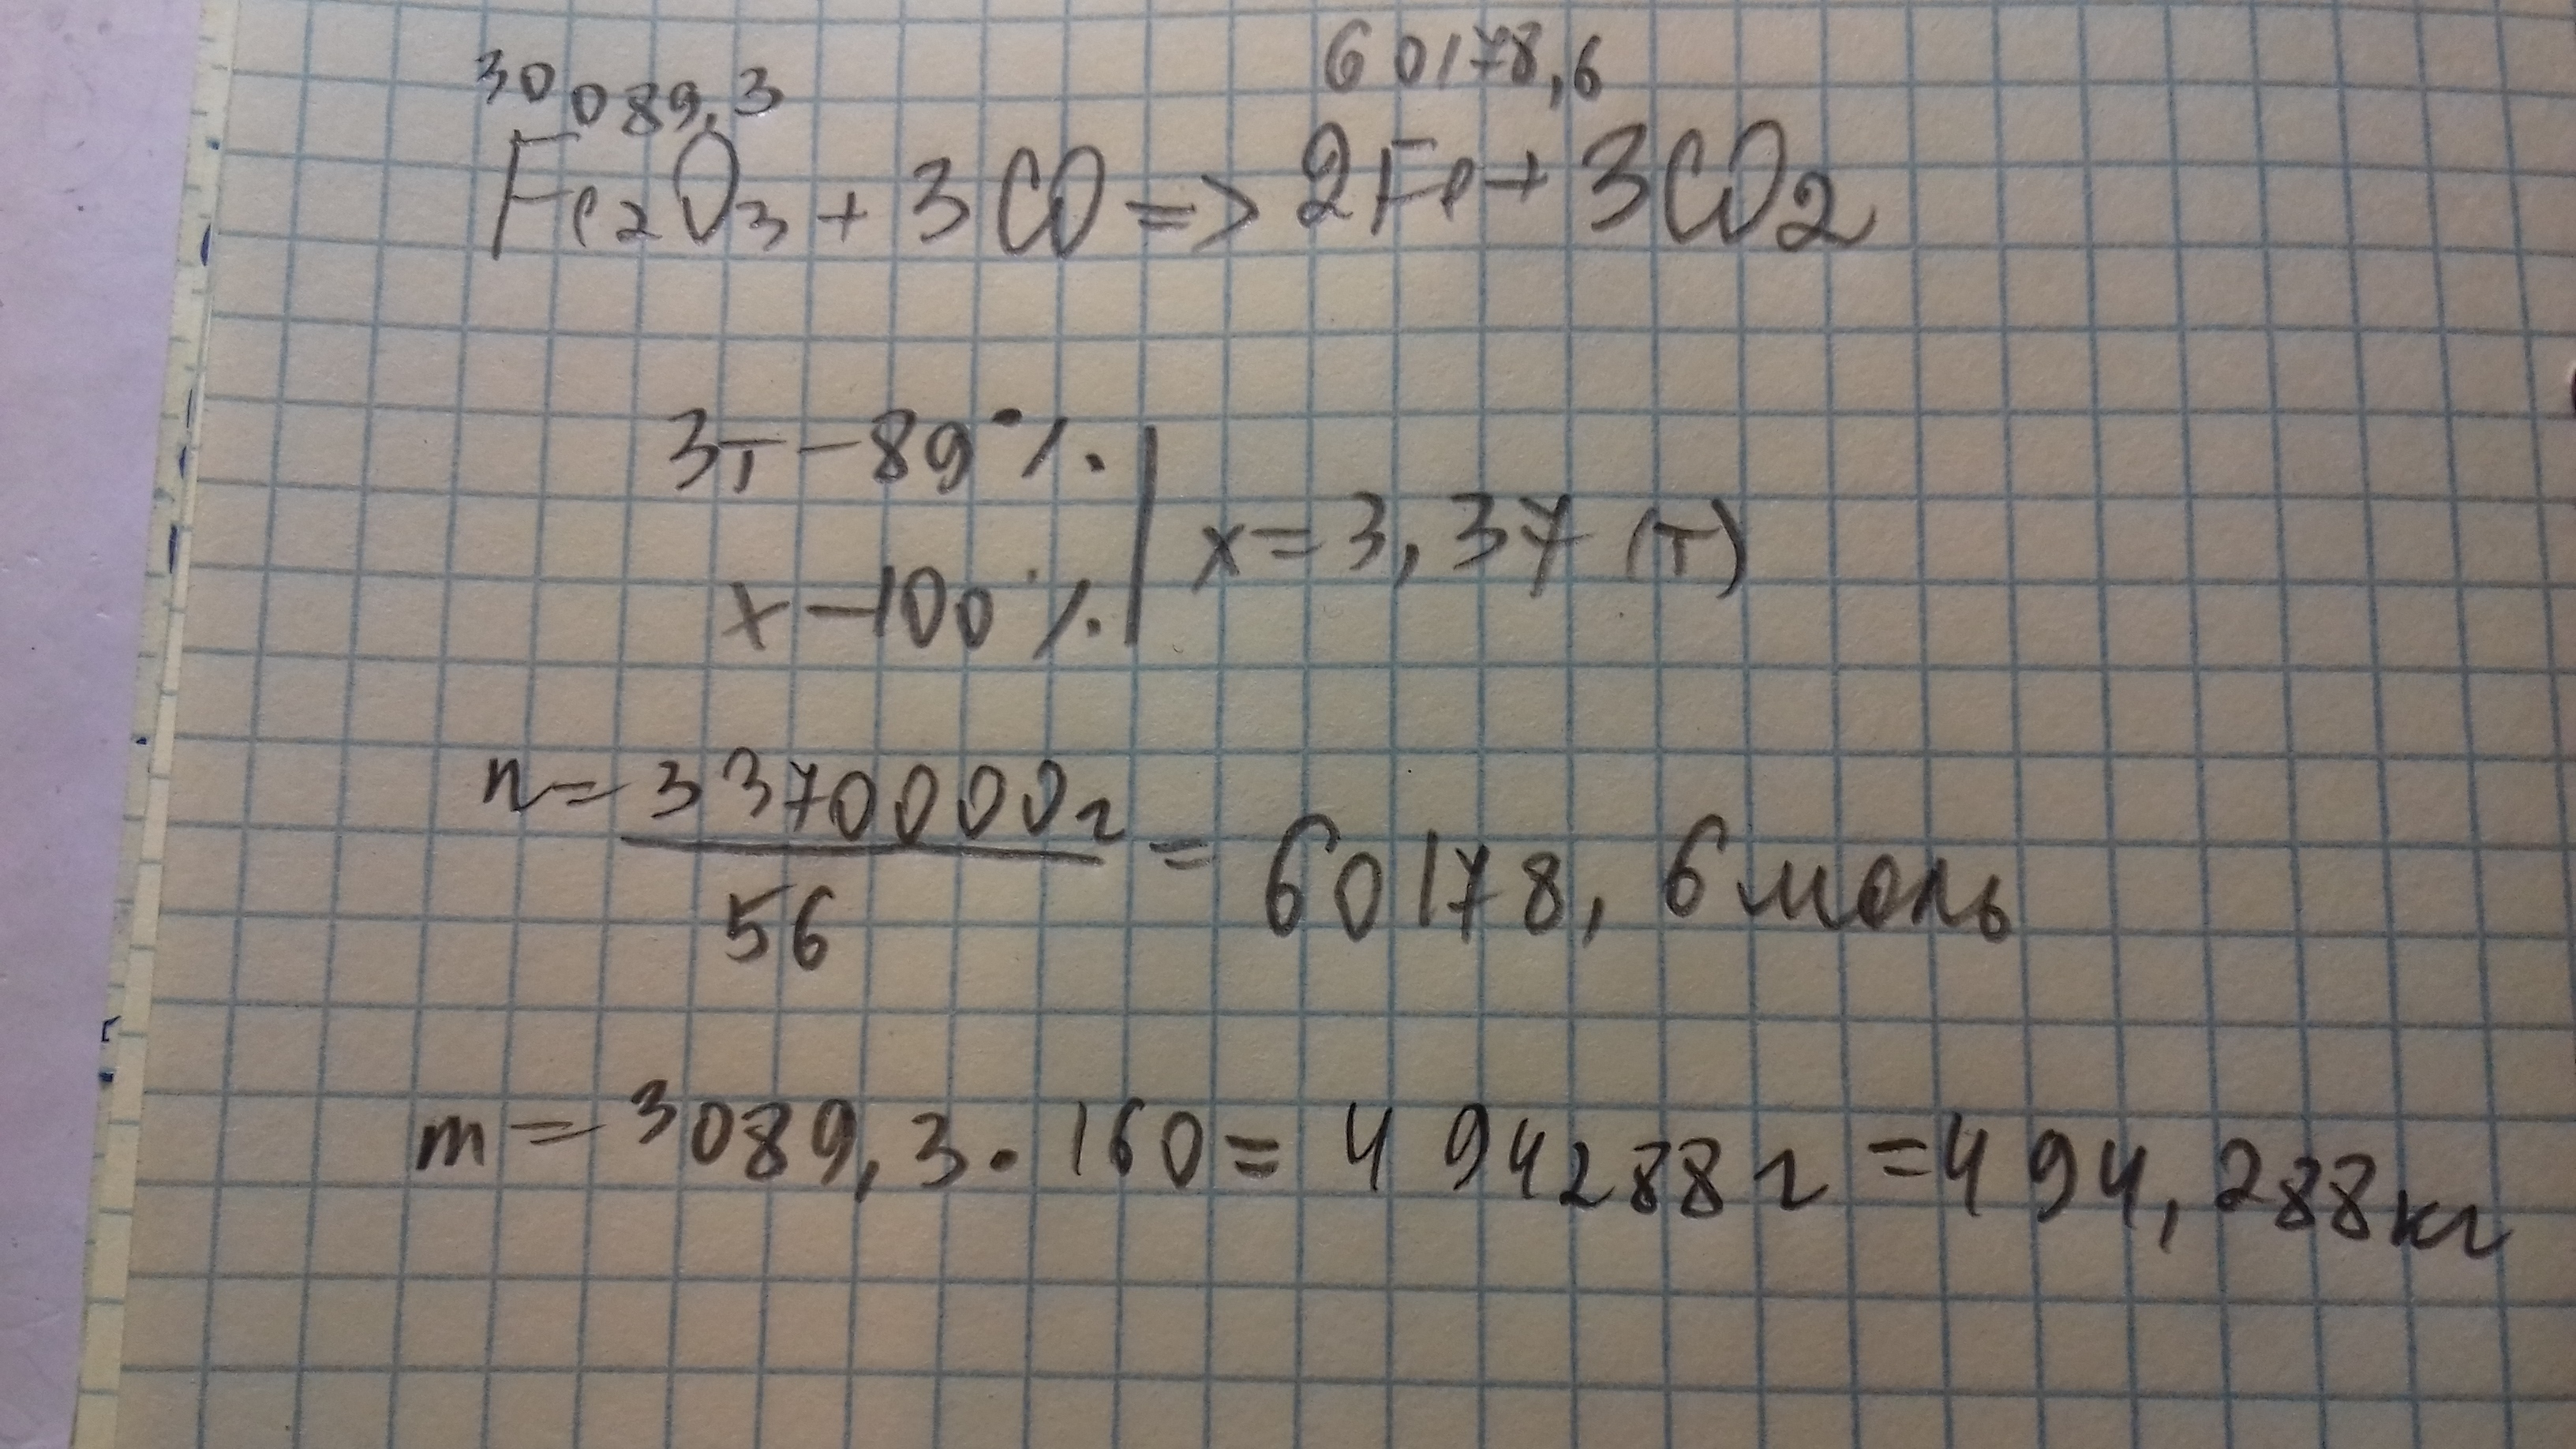 30089,3 60178,6
Fe₂O₃ + 3CO => 2Fe + 3CO₂
3т – 89%
x = 3,37 (т)
x – 100%
n = 3370000г / 56 = 60178,6 моль
m = 3089,3 · 160 = 494288г = 494,288кг